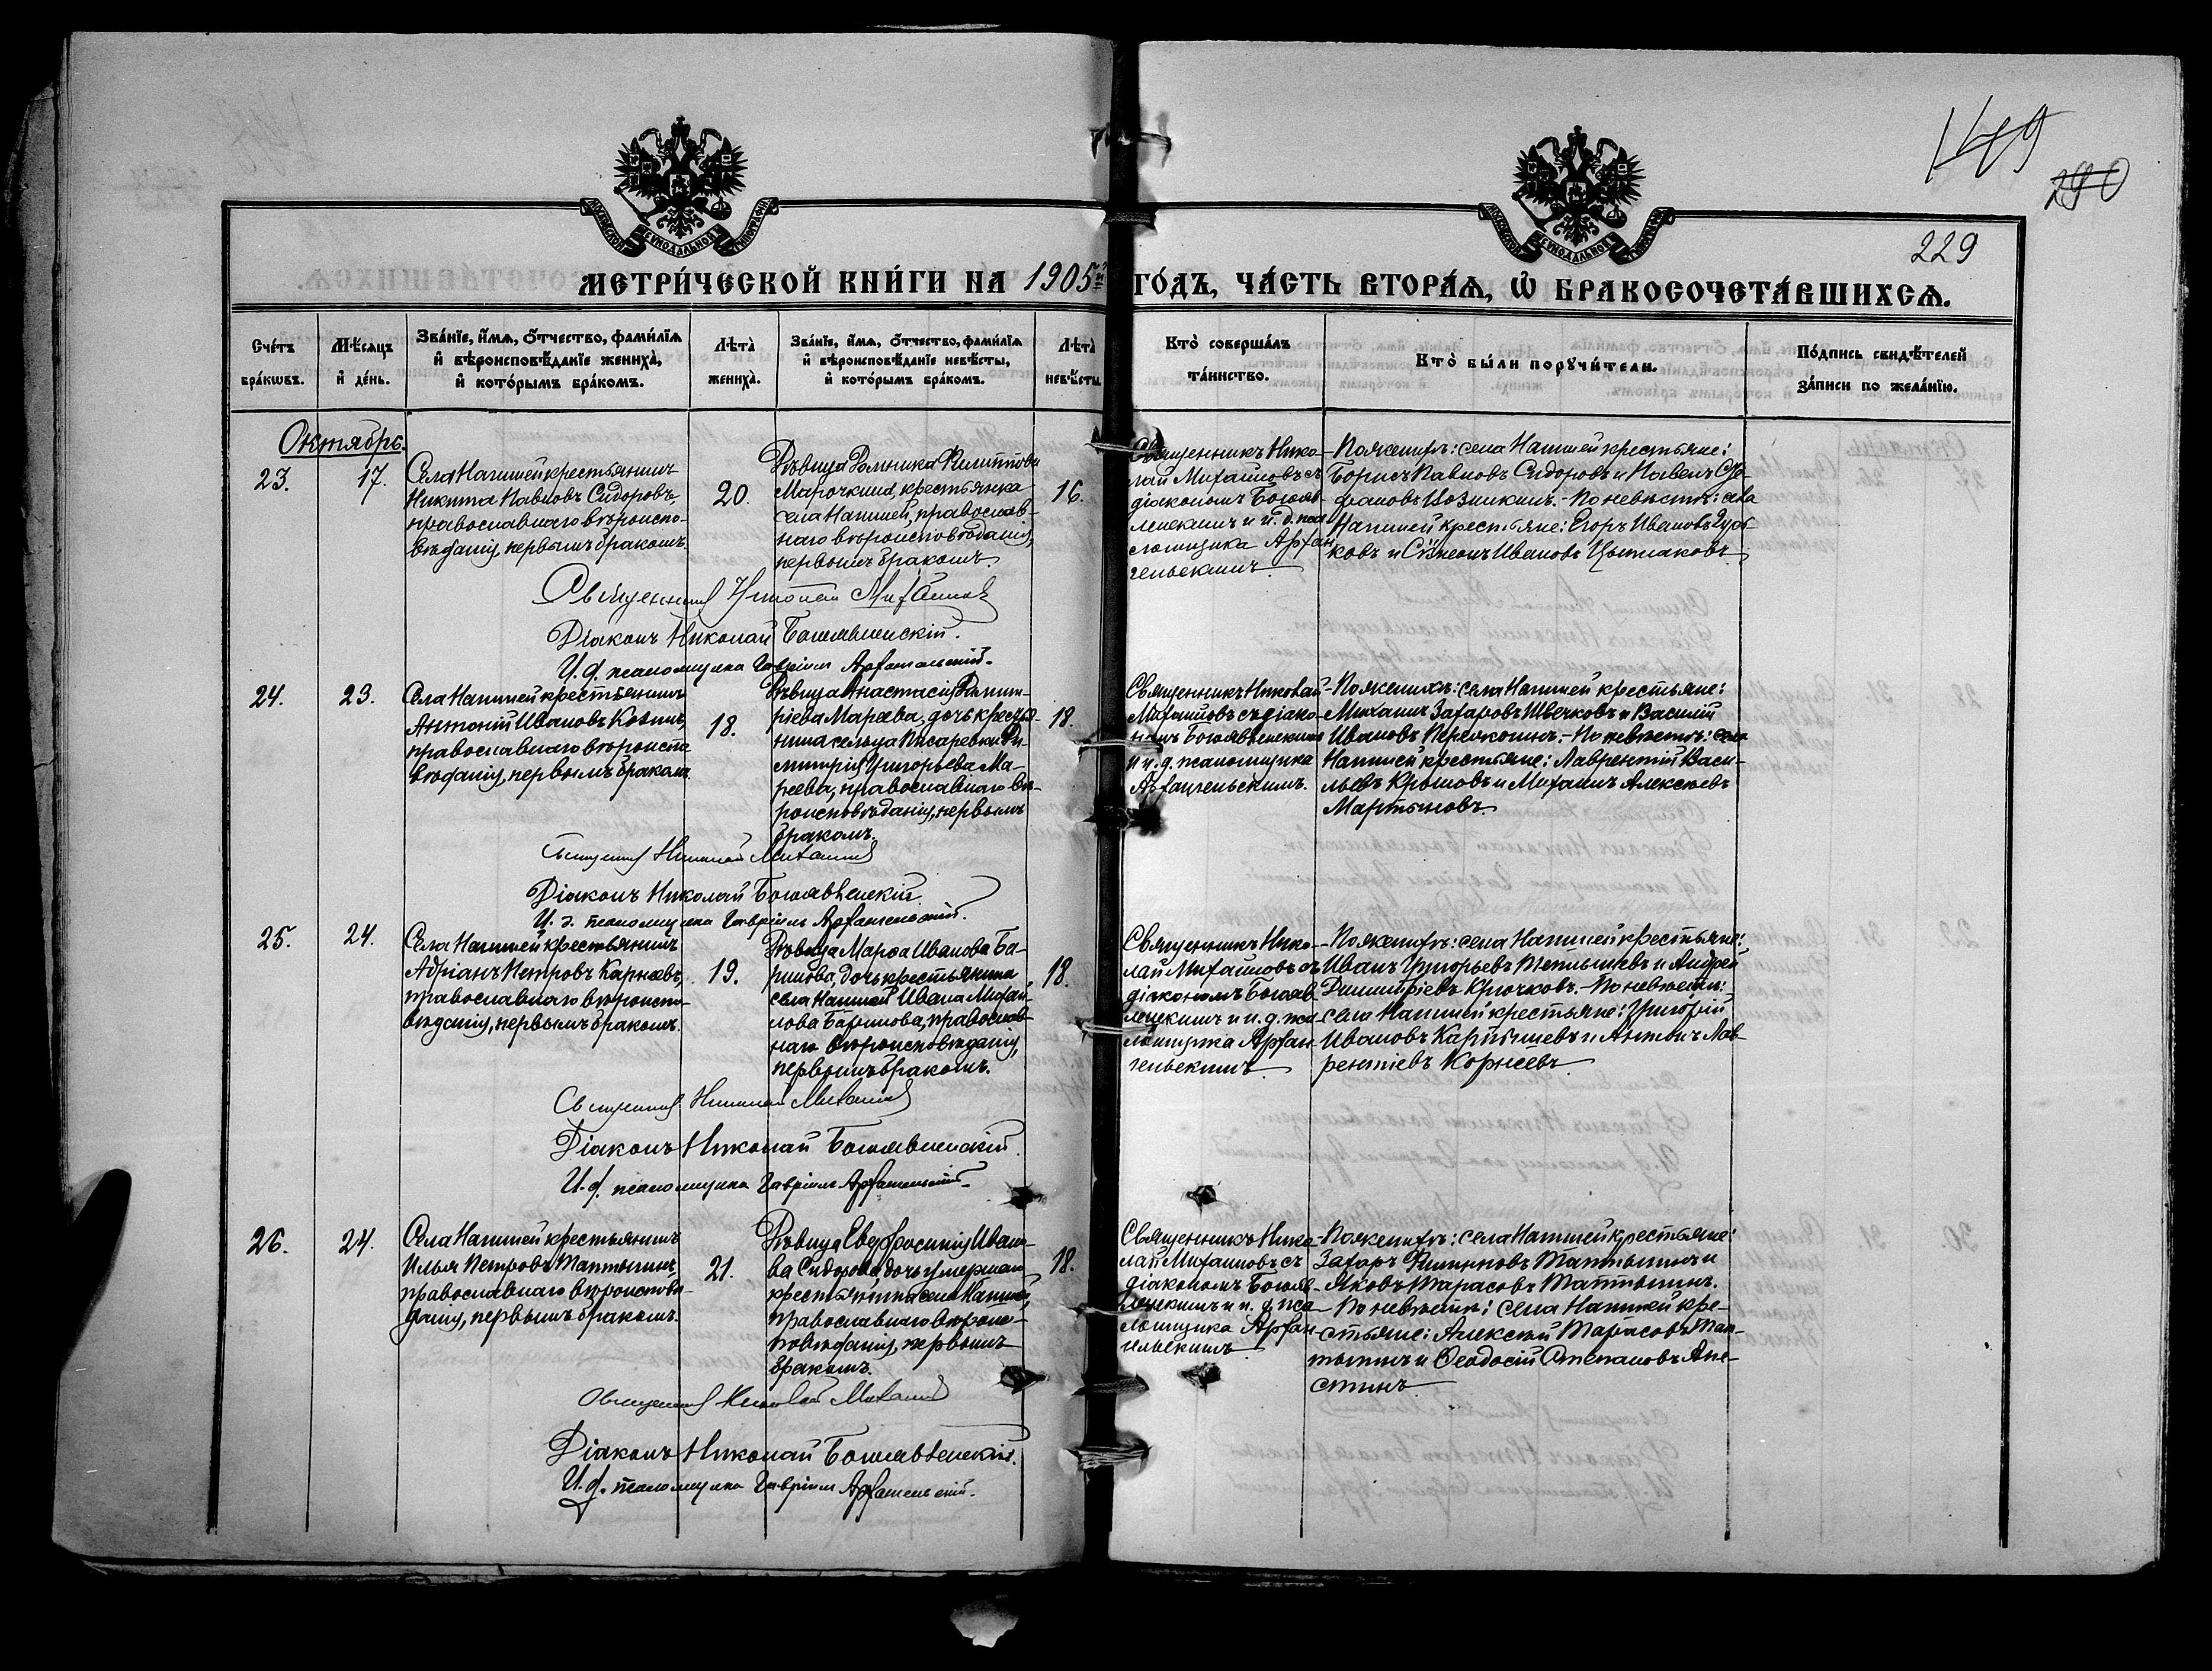 149
290
229
МЕТРИ́ЧЕСКОЙ КНИ́ГИ НА 1905й ГО́ДЪ, ЧА́СТЬ ВТОРА́Я, Ѡ҆ БРАКОСОЧЕТА́ВШИХСЯ.
МОСКОВСКОЙ СѴНОДАЛЬНОЙ ТИПОГРАФІИ
МОСКОВСКОЙ СѴНОДАЛЬНОЙ ТИПОГРАФІИ
Сче́тъ бра́кѡвъ.
Мѣ́сяцъ и҆ де́нь.
Зва́нїе, и҆́мя, ѻ҆́тчество, фами́лїя и҆ вѣроисповѣ́данїе жениха̀, и҆ кото́рымъ бра́комъ.
Лѣта̀ жениха̀.
Зва́нїе, и҆́мя, ѻ҆́тчество, фами́лїя и҆ вѣроисповѣ́данїе невѣ́сты, и҆ кото́рымъ бра́комъ.
Лѣта̀ невѣ́сты.
Кто̀ соверша́лъ та́инство.
Кто̀ бы́ли поручи́тели.
По́дпись свидѣ́телей за́писи по жела́нїю.
Октябрь.
23.
17.
Села Напшей крестьянинъ
Никита Павловъ Сидоровъ,
православнаго вѣроиспо-
вѣданія, первымъ бракомъ.
20.
Дѣвица Домника Филиппова
Марочкина, крестьянка
села Напшей, православ-
наго вѣроисповѣданія,
первымъ бракомъ.
16.
Священникъ Нико-
лай Михайловъ съ
діакономъ Богояв-
ленскимъ и и. д. пса
ломщика Архан
гельскимъ.
По женихѣ: села Напшей крестьяне:
Борисъ Павловъ Сидоровъ и Павелъ Сте-
фановъ Извицкинъ. - По невѣстѣ: села
Напшей крестьяне: Егоръ Ивановъ
ковъ и Симеонъ Ивановъ
Священникъ Николай Михайловъ
Діаконъ Николай Богоявленскій.
И. д. псаломщика Гавріилъ Архангельскій.
24.
23.
Села Напшей крестьянинъ
Антоній Ивановъ Козинъ,
православнаго вѣроиспо
вѣданія, первымъ бракомъ
18.
Дѣвица Анастасія Дими-
ріева Мареева, дочь крестья-
нина сельца Писаревки Ди-
митрія Григорьева Ма-
реева, православнаго вѣ-
роисповѣданія, первымъ
бракомъ.
18.
Священникъ Николай
Михайловъ съ діако-
номъ Богоявленскимъ
и и. д. псаломщика
Архангельскимъ.
По женихѣ: села Напшей крестьяне:
Михаилъ Захаровъ Швечковъ и Василій
Ивановъ - По невѣстѣ: села
Напшей крестьяне: Лаврентій Васи-
льевъ и Михаилъ Алексѣевъ
Мартыновъ.
Священникъ Николай Михайловъ
Діаконъ Николай Богоявленскій.
И. д. псаломщика Гавріилъ Архангельскій.
25.
24.
Села Напшей крестьянинъ
Адріанъ Петровъ Карнѣевъ,
православнаго вѣроиспо-
вѣданія, первымъ бракомъ.
19.
Дѣвица Марѳа Иванова Ба-
ринова, дочь крестьянина
села Напшей Ивана Михай-
лова Баринова, православ-
наго вѣроисповѣданія,
первымъ бракомъ.
18.
Священникъ Нико-
лай Михайловъ съ
діакономъ Богояв
ленскимъ и и. д. пса-
ломщика Архан
гельскимъ.
По женихѣ: села Напшей крестьяне:
Иванъ Григорьевъ и Андрей
Димитріевъ Крючковъ. - По невѣстѣ:
села Напшей крестьяне: Григорій
Ивановъ и Антонъ Лав-
рентіевъ Корнѣевъ.
Священникъ Николай Михайловъ
Діаконъ Николай Богоявленскій.
И. д. псаломщика Гавріилъ Архангельскій.
26.
24.
Села Напшей крестьянинъ
Илья Петровъ Таптыгинъ,
православнаго вѣроисповѣ-
данія, первымъ бракомъ.
21.
Дѣвица Евфросинія Ивано-
ва Сидорова, дочь умершаго
крестьянина села Напшей,
православнаго вѣроис-
повѣданія, первымъ
бракомъ.
18.
Священникъ Нико
лай Михайловъ съ
діакономъ Богояв-
ленскимъ и и. д. пса
ломщика Архан-
гельскимъ.
По женихѣ: села Напшей крестьяне:
Захаръ Филипповъ Таптыгинъ и
Яковъ Тарасовъ Таптыгинъ.
- По невѣстѣ: села Напшей кре-
стьяне: Алексѣй Тарасовъ Тап-
тыгинъ и Ѳеодосій Степановъ Апе-
стинъ.
Священникъ Николай Михайловъ
Діаконъ Николай Богоявленскій.
И. д. псаломщика Гавріилъ Архангельскій.